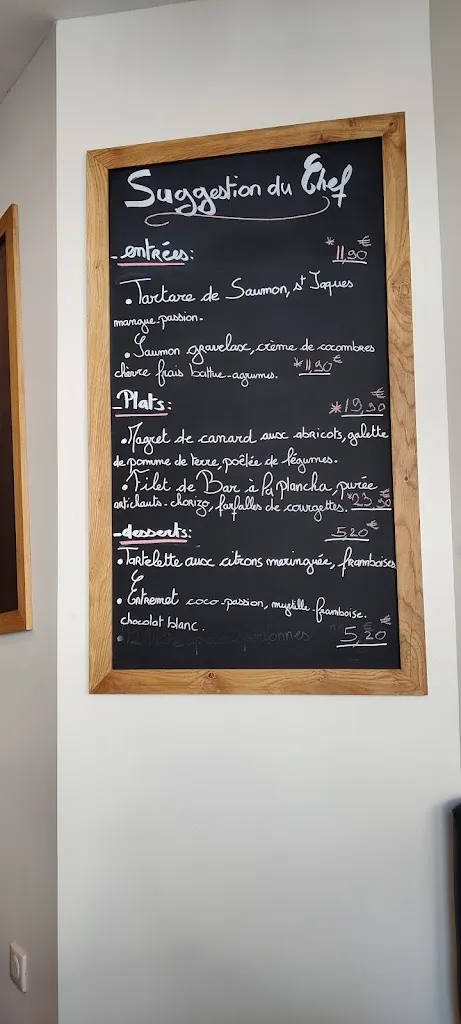 Suggestion du Chef
- entrées: *11,90€
• Tartare de Saumon, st Jaques
mangue-passion.
• Saumon gravelax, crème de cocombres
chèvre frais battue-agrumes. *11,90€
- Plats: *19,90€
• Magret de canard aux abricots, galette
de pomme de terre, poêlée de légumes.
• Filet de Bar à la plancha, purée
artichauts-chorizo, farfalles de courgettes. *23,90€
- desserts: 5,20€
• Tartelette aux citrons meringuée, framboises
• Entremet coco-passion, myrtille-framboise.
chocolat blanc.
5,20€